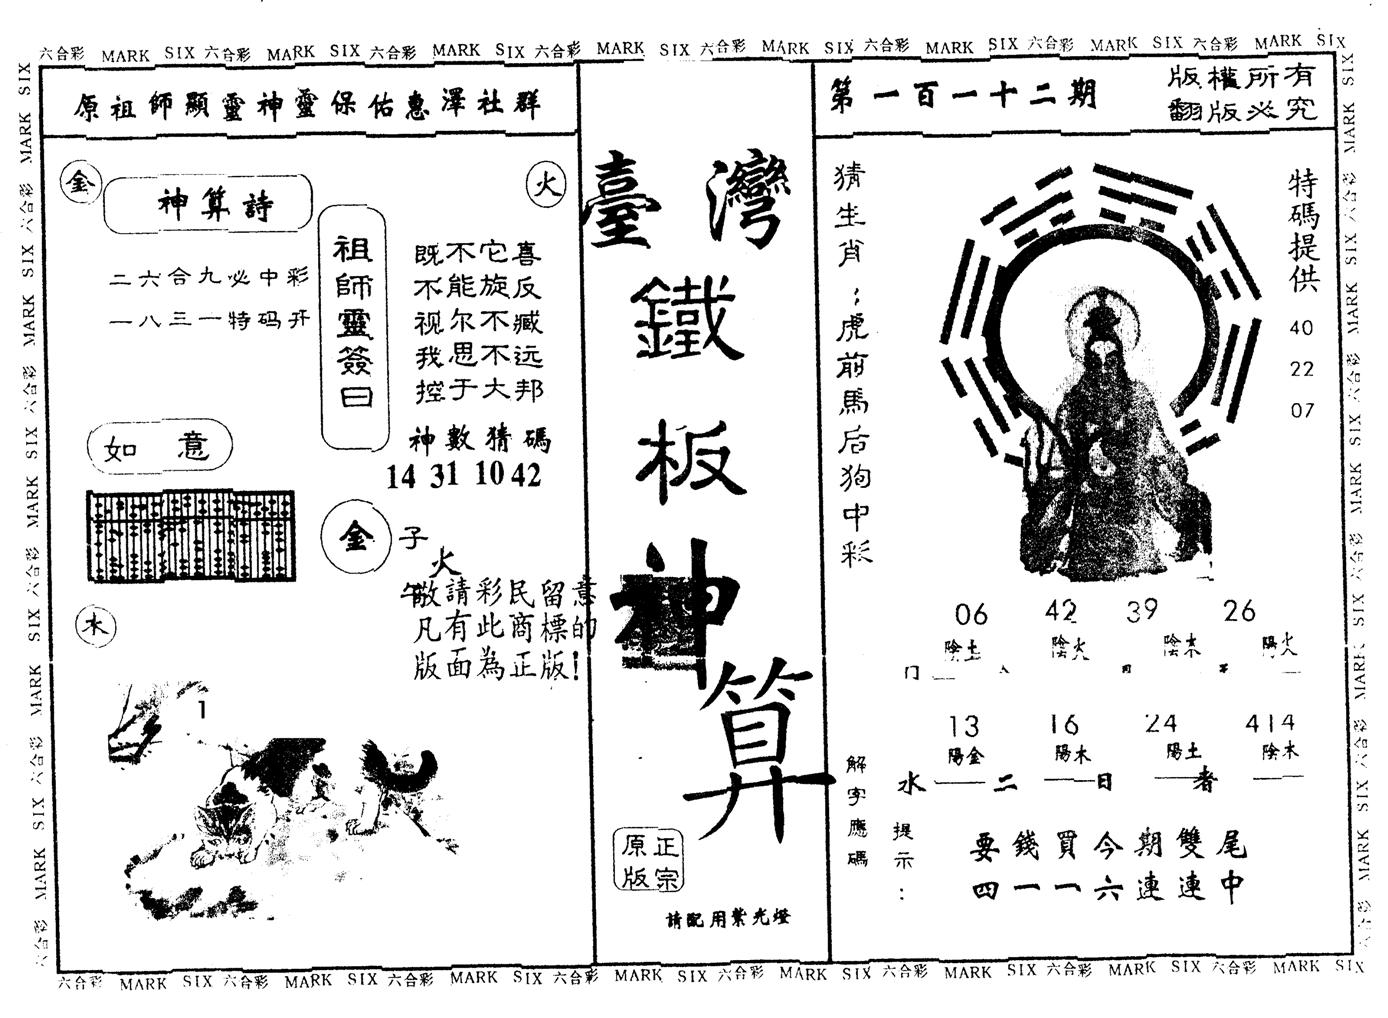 六合彩 MARK SIX 六合彩 MARK SIX 六合彩 MARK SIX 六合彩 MARK SIX 六合彩 MARK SIX 六合彩 MARK SIX 六合彩 MARK SIX 六合彩 MARK SIX
原祖師顯靈神靈保佑惠澤社群
金
神算詩
火
二六合九必中彩
一八三一特码开
祖師靈簽曰
既不它喜
不能旋反
视尔不臧
我思不远
控于大邦
神數猜碼
14 31 10 42
如意
金
子
火
午
敬請彩民留意
凡有此商標的
版面為正版!
水
1
臺灣
鐵
板
神
算
原版
正宗
請配用紫光燈
第一百一十二期
版權所有
翻版必究
猜生肖:虎前馬后狗中彩
特碼提供
40
22
07
06 42 39 26
陰土 陰火 陰木 陽火
13 16 24 414
陽金 陽木 陽土 陰木
水 二 日 者
解字應碼
提示:
要錢買今期雙尾
四一一六連連中
六合彩 MARK SIX 六合彩 MARK SIX 六合彩 MARK SIX 六合彩 MARK SIX 六合彩 MARK SIX 六合彩 MARK SIX 六合彩 MARK SIX 六合彩 MARK SIX